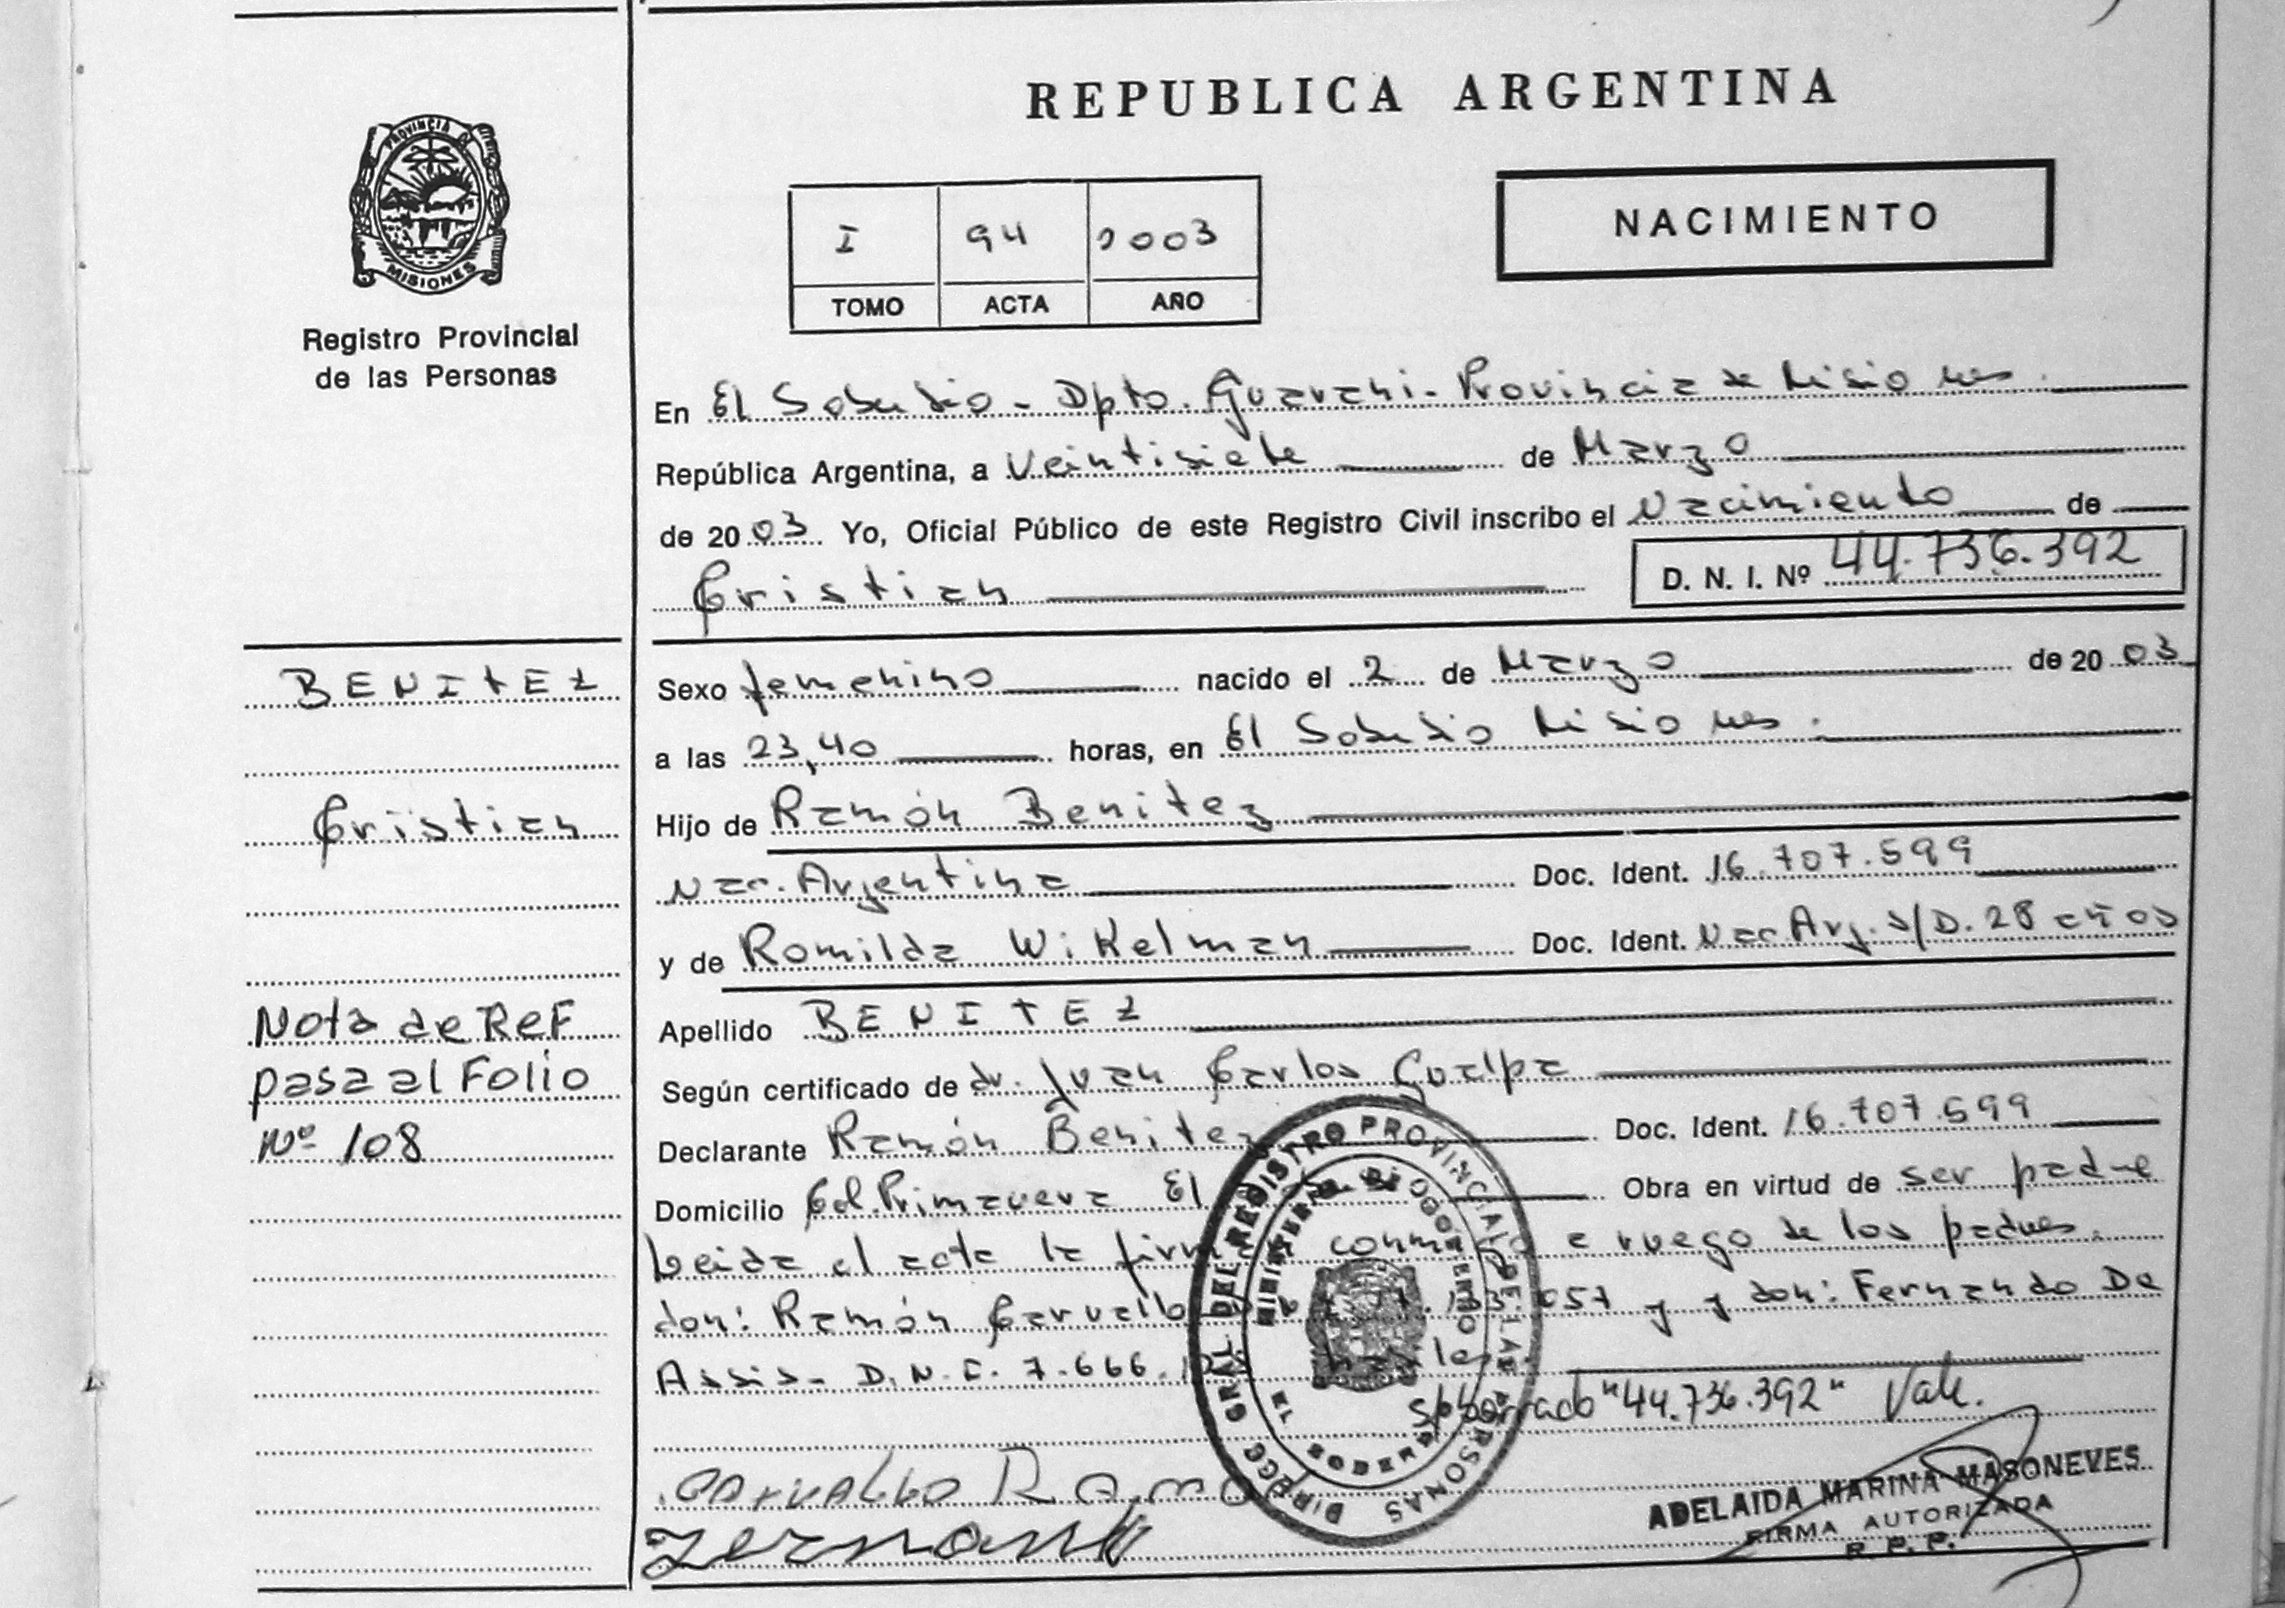 REPUBLICA ARGENTINA
PROVINCIA DE
MISIONES
Registro Provincial
de las Personas
I 94 2003
TOMO ACTA AÑO
NACIMIENTO
En El Soberbio - Dpto. Guarani - Provincia de Misiones.
República Argentina, a Veintisiete de Marzo
de 2003 Yo, Oficial Público de este Registro Civil inscribo el Nacimiento de
Cristian D. N. I. Nº 44.736.392
BENITEZ
Cristian
Nota de Ref
pasa al Folio
Nº 108
Sexo femenino nacido el 2 de Marzo de 2003
a las 23,40 horas, en El Soberbio Misiones.
Hijo de Ramón Benitez
Nac. Argentina Doc. Ident. 16.707.599
y de Romilda Wikelman Doc. Ident. Nac. Arg. s/D. 28 años
Apellido BENITEZ
Según certificado de dr. Juan Carlos Gualpa
Declarante Ramón Benitez Doc. Ident. 16.707.599
Domicilio Col. Primavera El Obra en virtud de ser padre
Leida el acta la firman conmigo a ruego de los padres.
don: Ramón Carvallo 057 y y don: Fernando De
Assis - D.N.I. 7.666.
s/borrado "44.736.392" Vale.
DIRECC GRAL DEL REGISTRO PROVINCIAL DE LAS PERSONAS
MINISTERIO DE GOBIERNO
Carvallo Ramo
ADELAIDA MARINA MASONEVES
FIRMA AUTORIZADA
R. P. P.